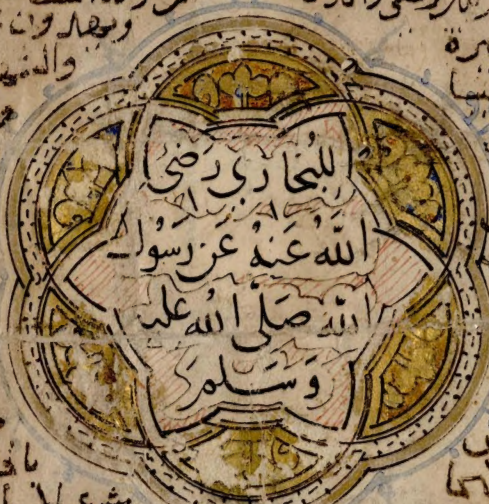 للبُخَارِي رَضِيَ
اللهُ عَنهُ عَن رَسُول
اللهِ صَلَّى اللهُ عليه
وَسَلم